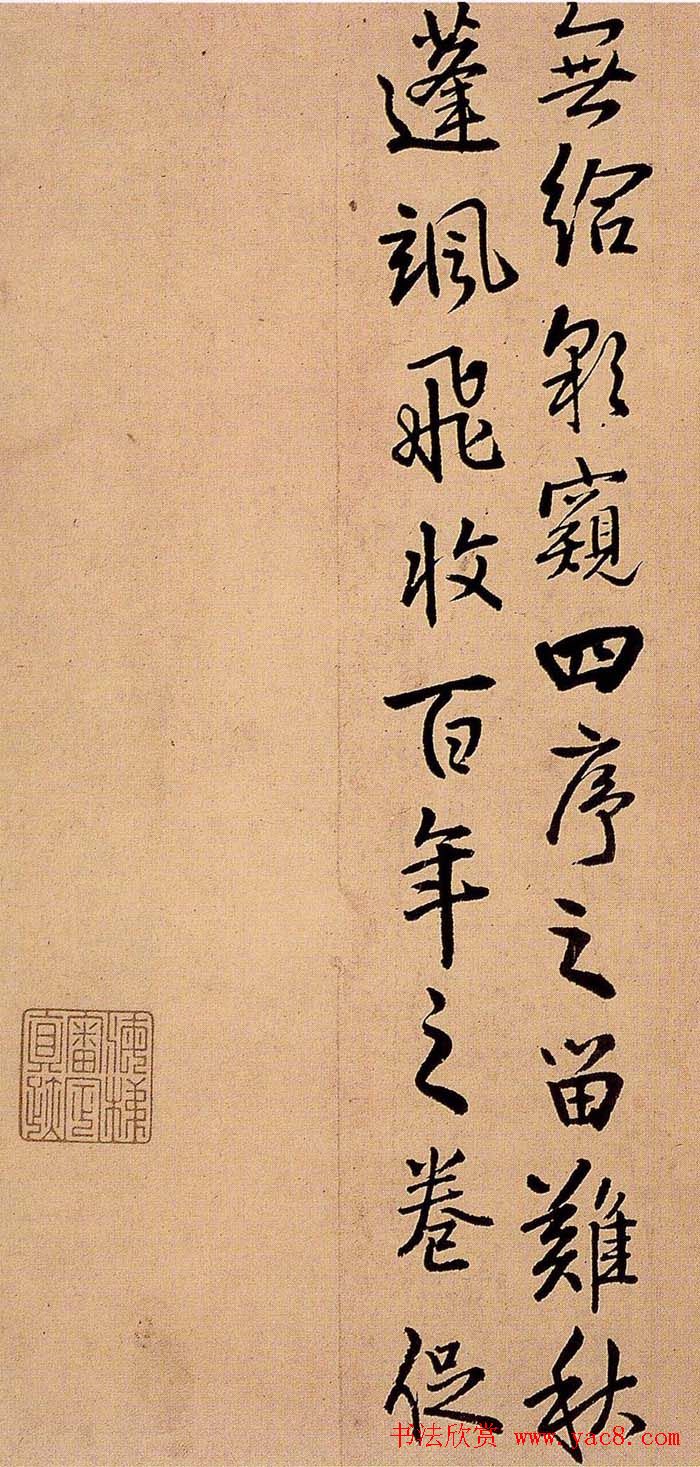 無給窺四序之留難秋
蓬颯飛收百年之卷促
審定真跡
书法欣赏 www.yac8.com